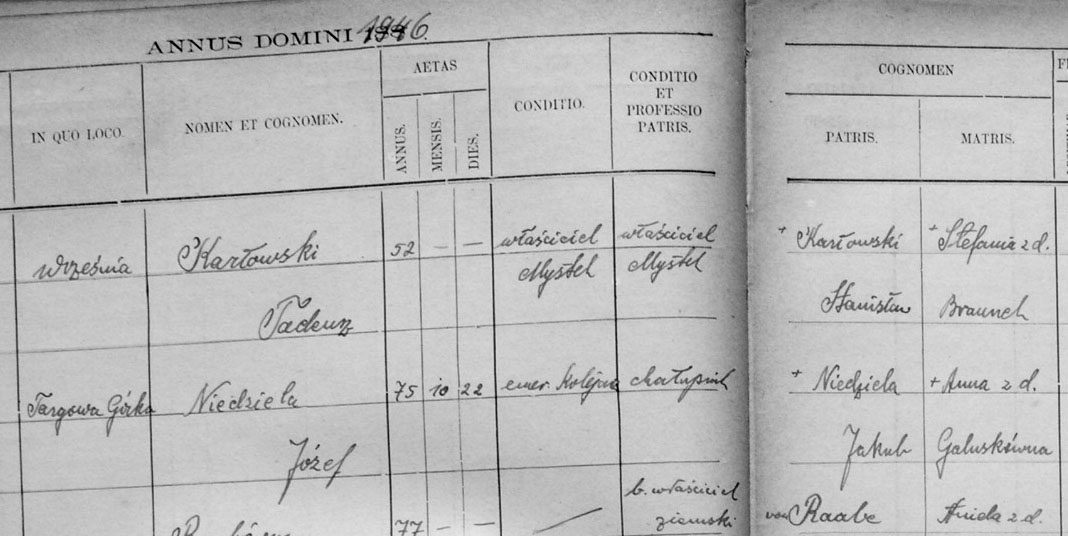 ANNUS DOMINI 1946
IN QUO LOCO.
NOMEN ET COGNOMEN.
AETAS
ANNUS.
MENSIS.
DIES.
CONDITIO.
CONDITIO
ET
PROFESSIO
PATRIS.
COGNOMEN
PATRIS.
MATRIS.
Września
Karłowski
Tadeusz
52 — —
właściciel
Myszek
właściciel
Myszek
+ Karłowski
Stanisław
+ Stefania z d.
Braunek
Targowa Górka
Niedziela
Józef
75 10 22
emer. Kolejowy
chałupnik
+ Niedziela
Jakub
+ Anna z d.
Galuskówna
77 — —
b. właściciel
ziemski
von Raabe
z d.